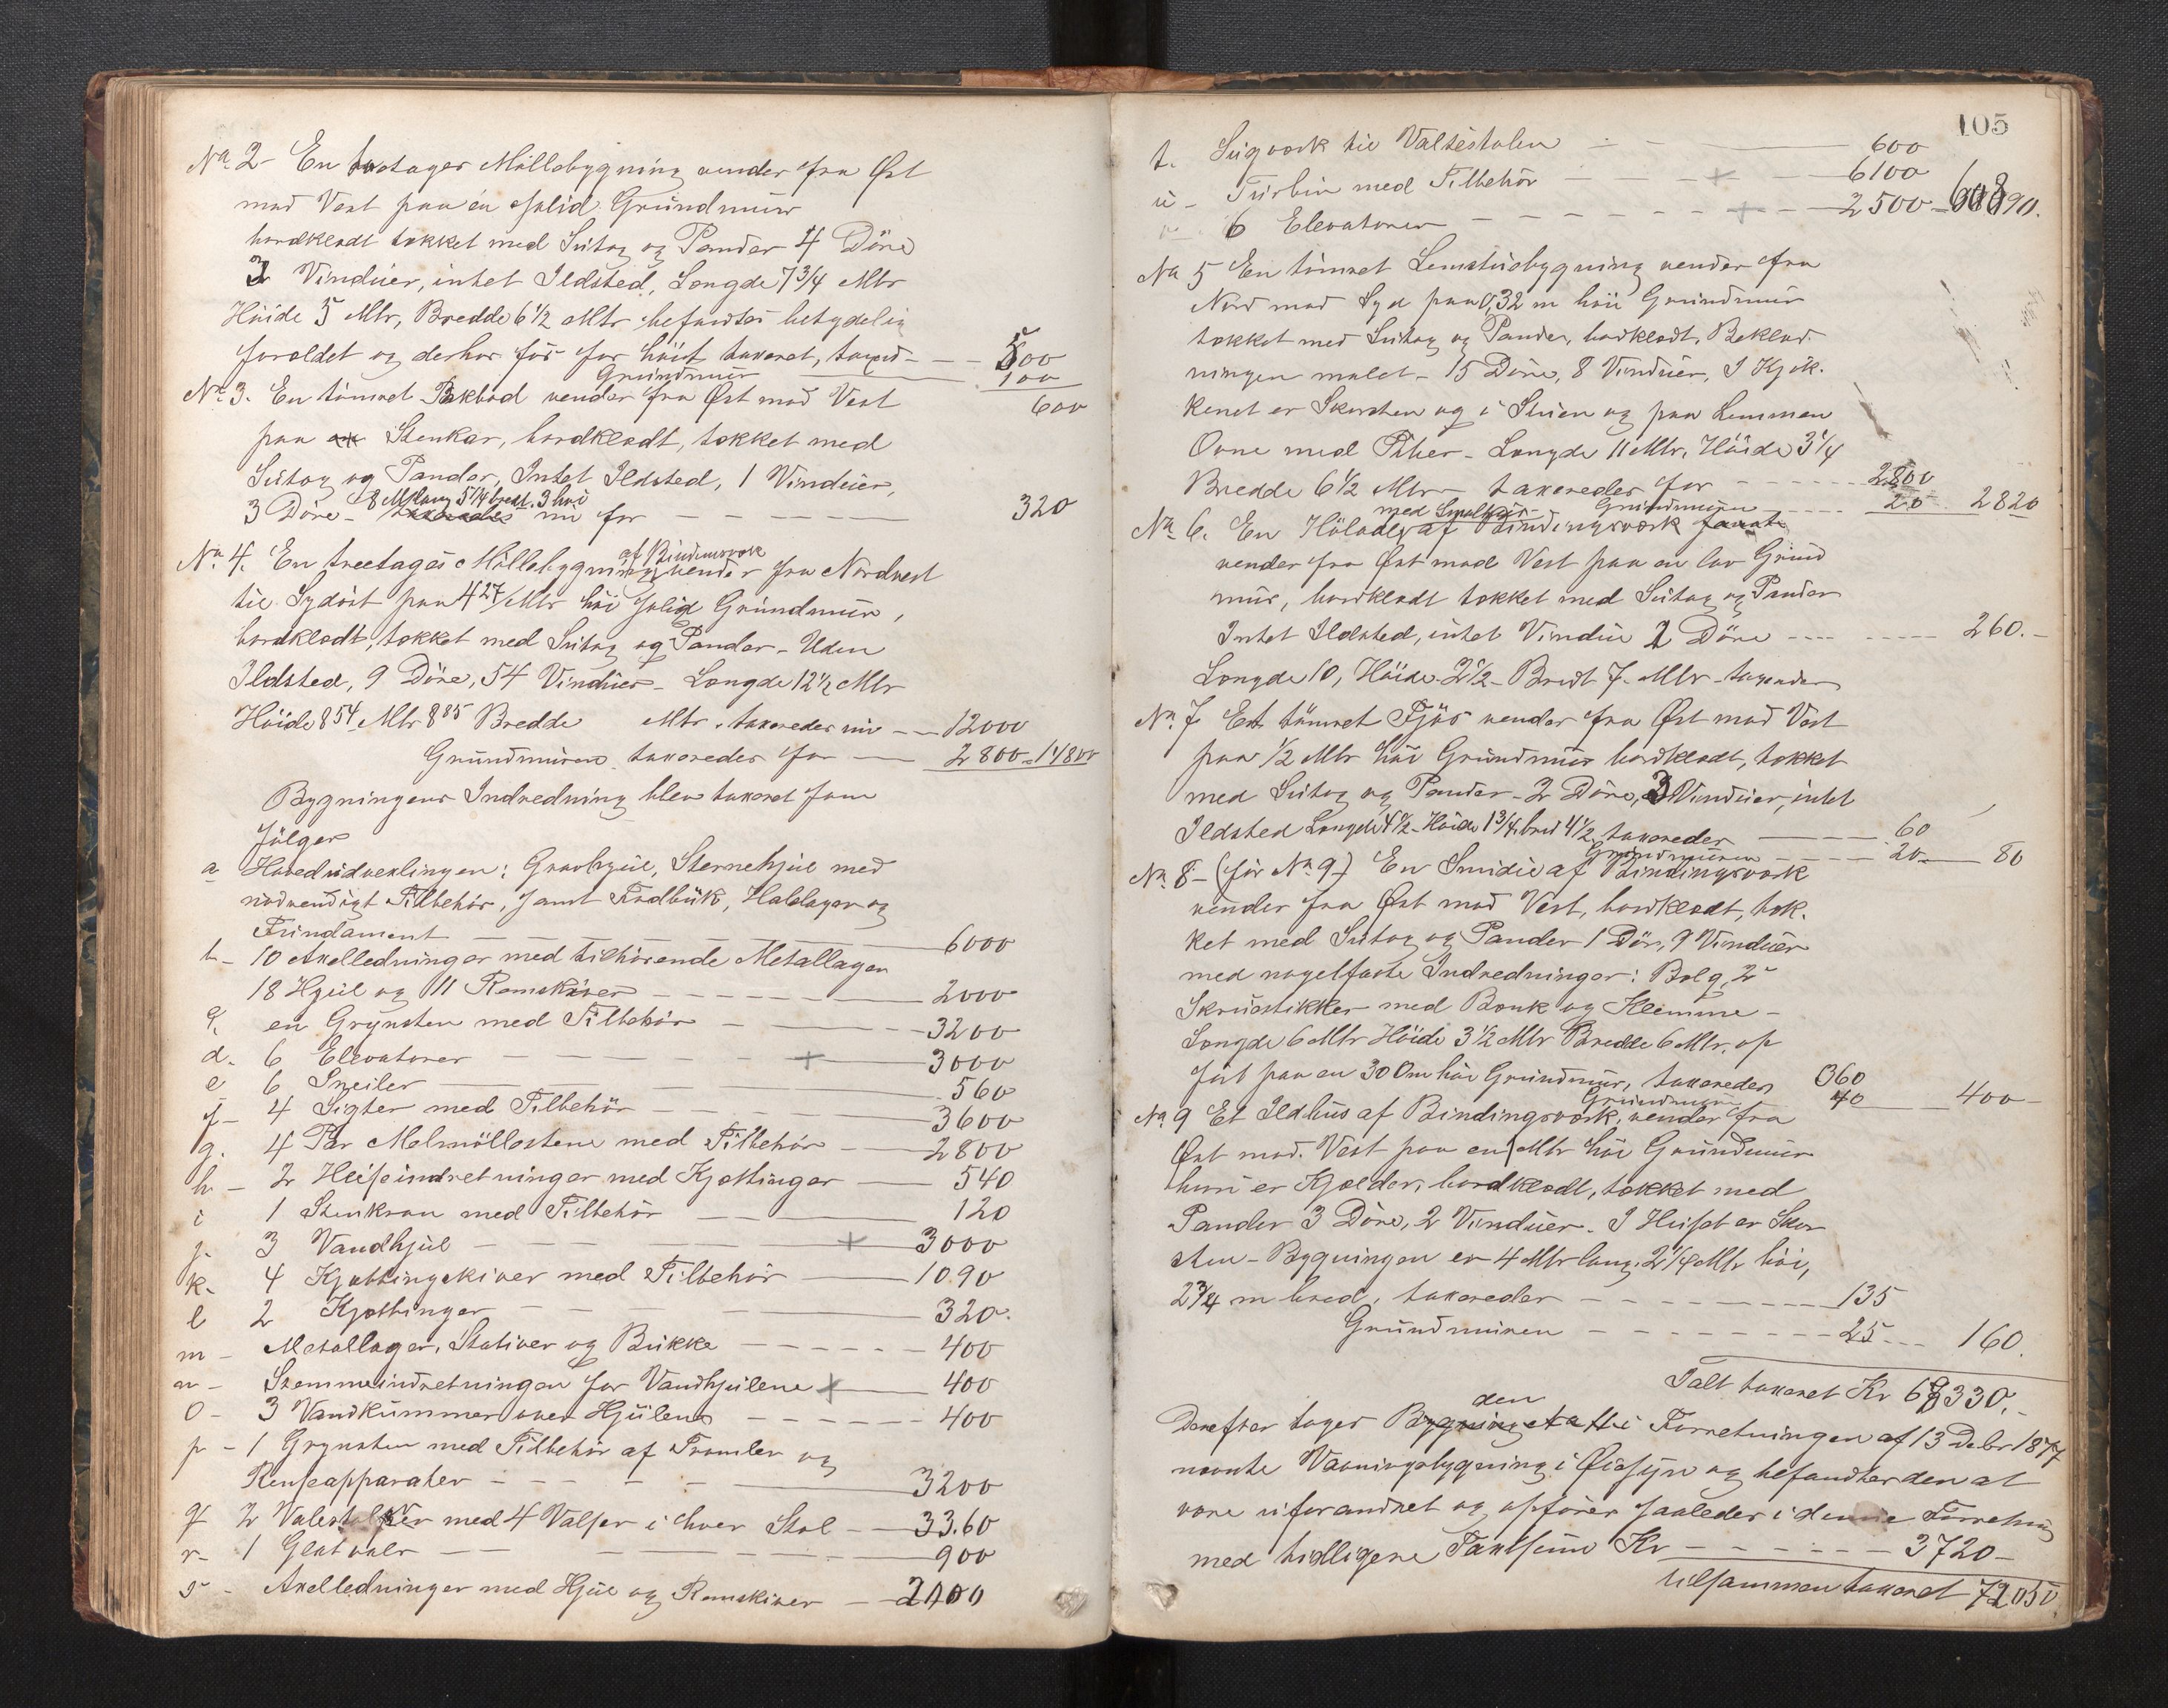 No 2 - En toetages Möllebygning vender fra Öst
mod Vest paa en solid Grundmur
bordklædt tækket med Sutag og Pander 4 Döre
3 Vinduer, intet Ildsted, Længde 7 3/4 Mtr
Höide 5 Mtr, Bredde 6 1/2 Mtr befandtes betydelig
forældet og derhos för for höit taxeret, taxeres - - 500
Grundmur 100
600
No 3. En tömret Bakbod vender fra Öst mod Vest
paa Stenkar, bordklædt, tækket med
Sutag og Pander, Intet Ildsted, 1 Vinduer,
8 M lang 5 1/4 bred. 3 höi
3 Döre - taxeredes nu for - - - 320
No 4. En treetages Möllebygning af Bindingsværk vender fra Nordvest
til Sydöst paa 4 27/ Mtr höi solid Grundmur,
bordklædt, tækket med Sutag og Pander - Uden
Ildsted, 9 Döre, 54 Vinduer - Længde 12 1/2 Mtr
Höide 8 54 Mtr 8 85 Bredde Mtr. taxeredes nu - - 12000
Grundmuren taxeredes for - 2800 = 14800
Bygningens Indredning blev taxeret som
fölger
a Hovedudvexlingen: Gravhjul, Sternehjul med
nödvendigt Tilbehör, samt Tralbuk, Halslager og
Fundament - - - 6000
b - 10 Axelledninger med tilhörende Metallager
18 Hjul og 11 Remskiver - - - 2000
c. en Grynsten med Tilbehör - - - 3200
d. 6 Elevatorer - - - + 3000
e 6 Sneiler - 560
f - 4 Sigter med Tilbehör - - - 3600
g. 4 Par Melmöllestene med Tilbehör - - 2800
h - 2 Heiseindretninger med Kjættinger - 540
i 1 Stenkran med Tilbehör - 120
j. 3 Vandhjul - - - + 3000
k. 4 Kjættingskiver med Tilbehör - 1090
l 2 Kjættinger - - - 320.
m - Metallager, Stativer og Bukke - - - 400
n - Stemmeindretningen for Vandhjulene + 400
o - 3 Vandkummer over Hjulene - - - 400
p - 1 Grynsten med Tilbehör af Tromler og
Renseapparater - - - 3200
q 2 Valsestoler med 4 Valser i hver Stol - - 33.60
r - 1 Glatvals - - - 900
s - Axelledninger med Hjul og Remskiver - 2100
105
t. Sugværk til Valsestolen - - - 600
u - Turbin med Tilbehör - - - + - 6100
v 6 Elevatorer - - - + - 2500 - 60890.
No 5 En tömret Lemstuebygning vender fra
Nord mod Syd paa 0,32 m höi Grundmur
tækket med Sutag og Pander, bordklædt, Beklæd-
ningen malet - 15 Döre, 8 Vinduer, I Kjök-
kenet er Skorsten og i Stuen og paa Lemmen
Ovne med Piber - Længde 11 Mtr, Höide 3 1/4
Bredde 6 1/2 Mtr - taxeredes for - - - 2800
Grundmuren - - - 20 2820
No 6. En Hölade af Bindingsværk
vender fra Öst mod Vest paa en lav Grund
mur, bordklædt tækket med Sutag og Pander
Intet Ildsted, intet Vindue 2 Döre - - - 260. -
Længde 10, Höide 2 1/2 - Bredt 7 - Mtr - taxeredes
No 7 Et tömret Fjös vender fra Öst mod Vest
paa 1/2 Mtr höi Grundmur bordklædt, tækket
med Sutag og Pander - 2 Döre, 3 Vinduer, intet
Ildsted Længde 4 1/2 - Höide 1 3/4, bred 4 1/2, taxeredes - 60
Grundmuren - - - 20 - 80
No 8 - (för No 9 -) En Smidie af Bindingsværk
vender fra Öst mod Vest, bordklædt, tæk-
ket med Sutag og Pander 1 Dör, 9 Vinduer
med nagelfaste Indredninger: Bælg, 2
Skruestikker med Bænk og Klemme -
Længde 6 Mtr Höide 3 1/2 Mtr Bredde 6 Mtr. op
fört paa en 30 Cm höi Grundmur, taxeredes 360
Grundmuren 40 - 400 -
No 9 Et Ildhus af Bindingsværk, vender fra
Öst mod Vest paa en 1 Mtr höi Grundmur
hvori er Kjælder, bordklædt, tækket med
Pander 3 Döre, 2 Vinduer. I Huset er Skor
sten - Bygningen er 4 Mtr lang, 2 1/4 Mtr höi,
2 3/4 m bred, taxeredes - - - 135
Grundmuren - - - 25 - - 160.
Ialt taxeret Kr 68330. -
Derefter toges den i Forretningen af 13 Debr 1877
nævnte Vaaningsbygning i Öiesyn og befandtes den at
være uforandret og opföres saaledes i denne Forretning
med tidligere Taxtsum Kr - - - 3720 -
tilsammen taxeret 72050.